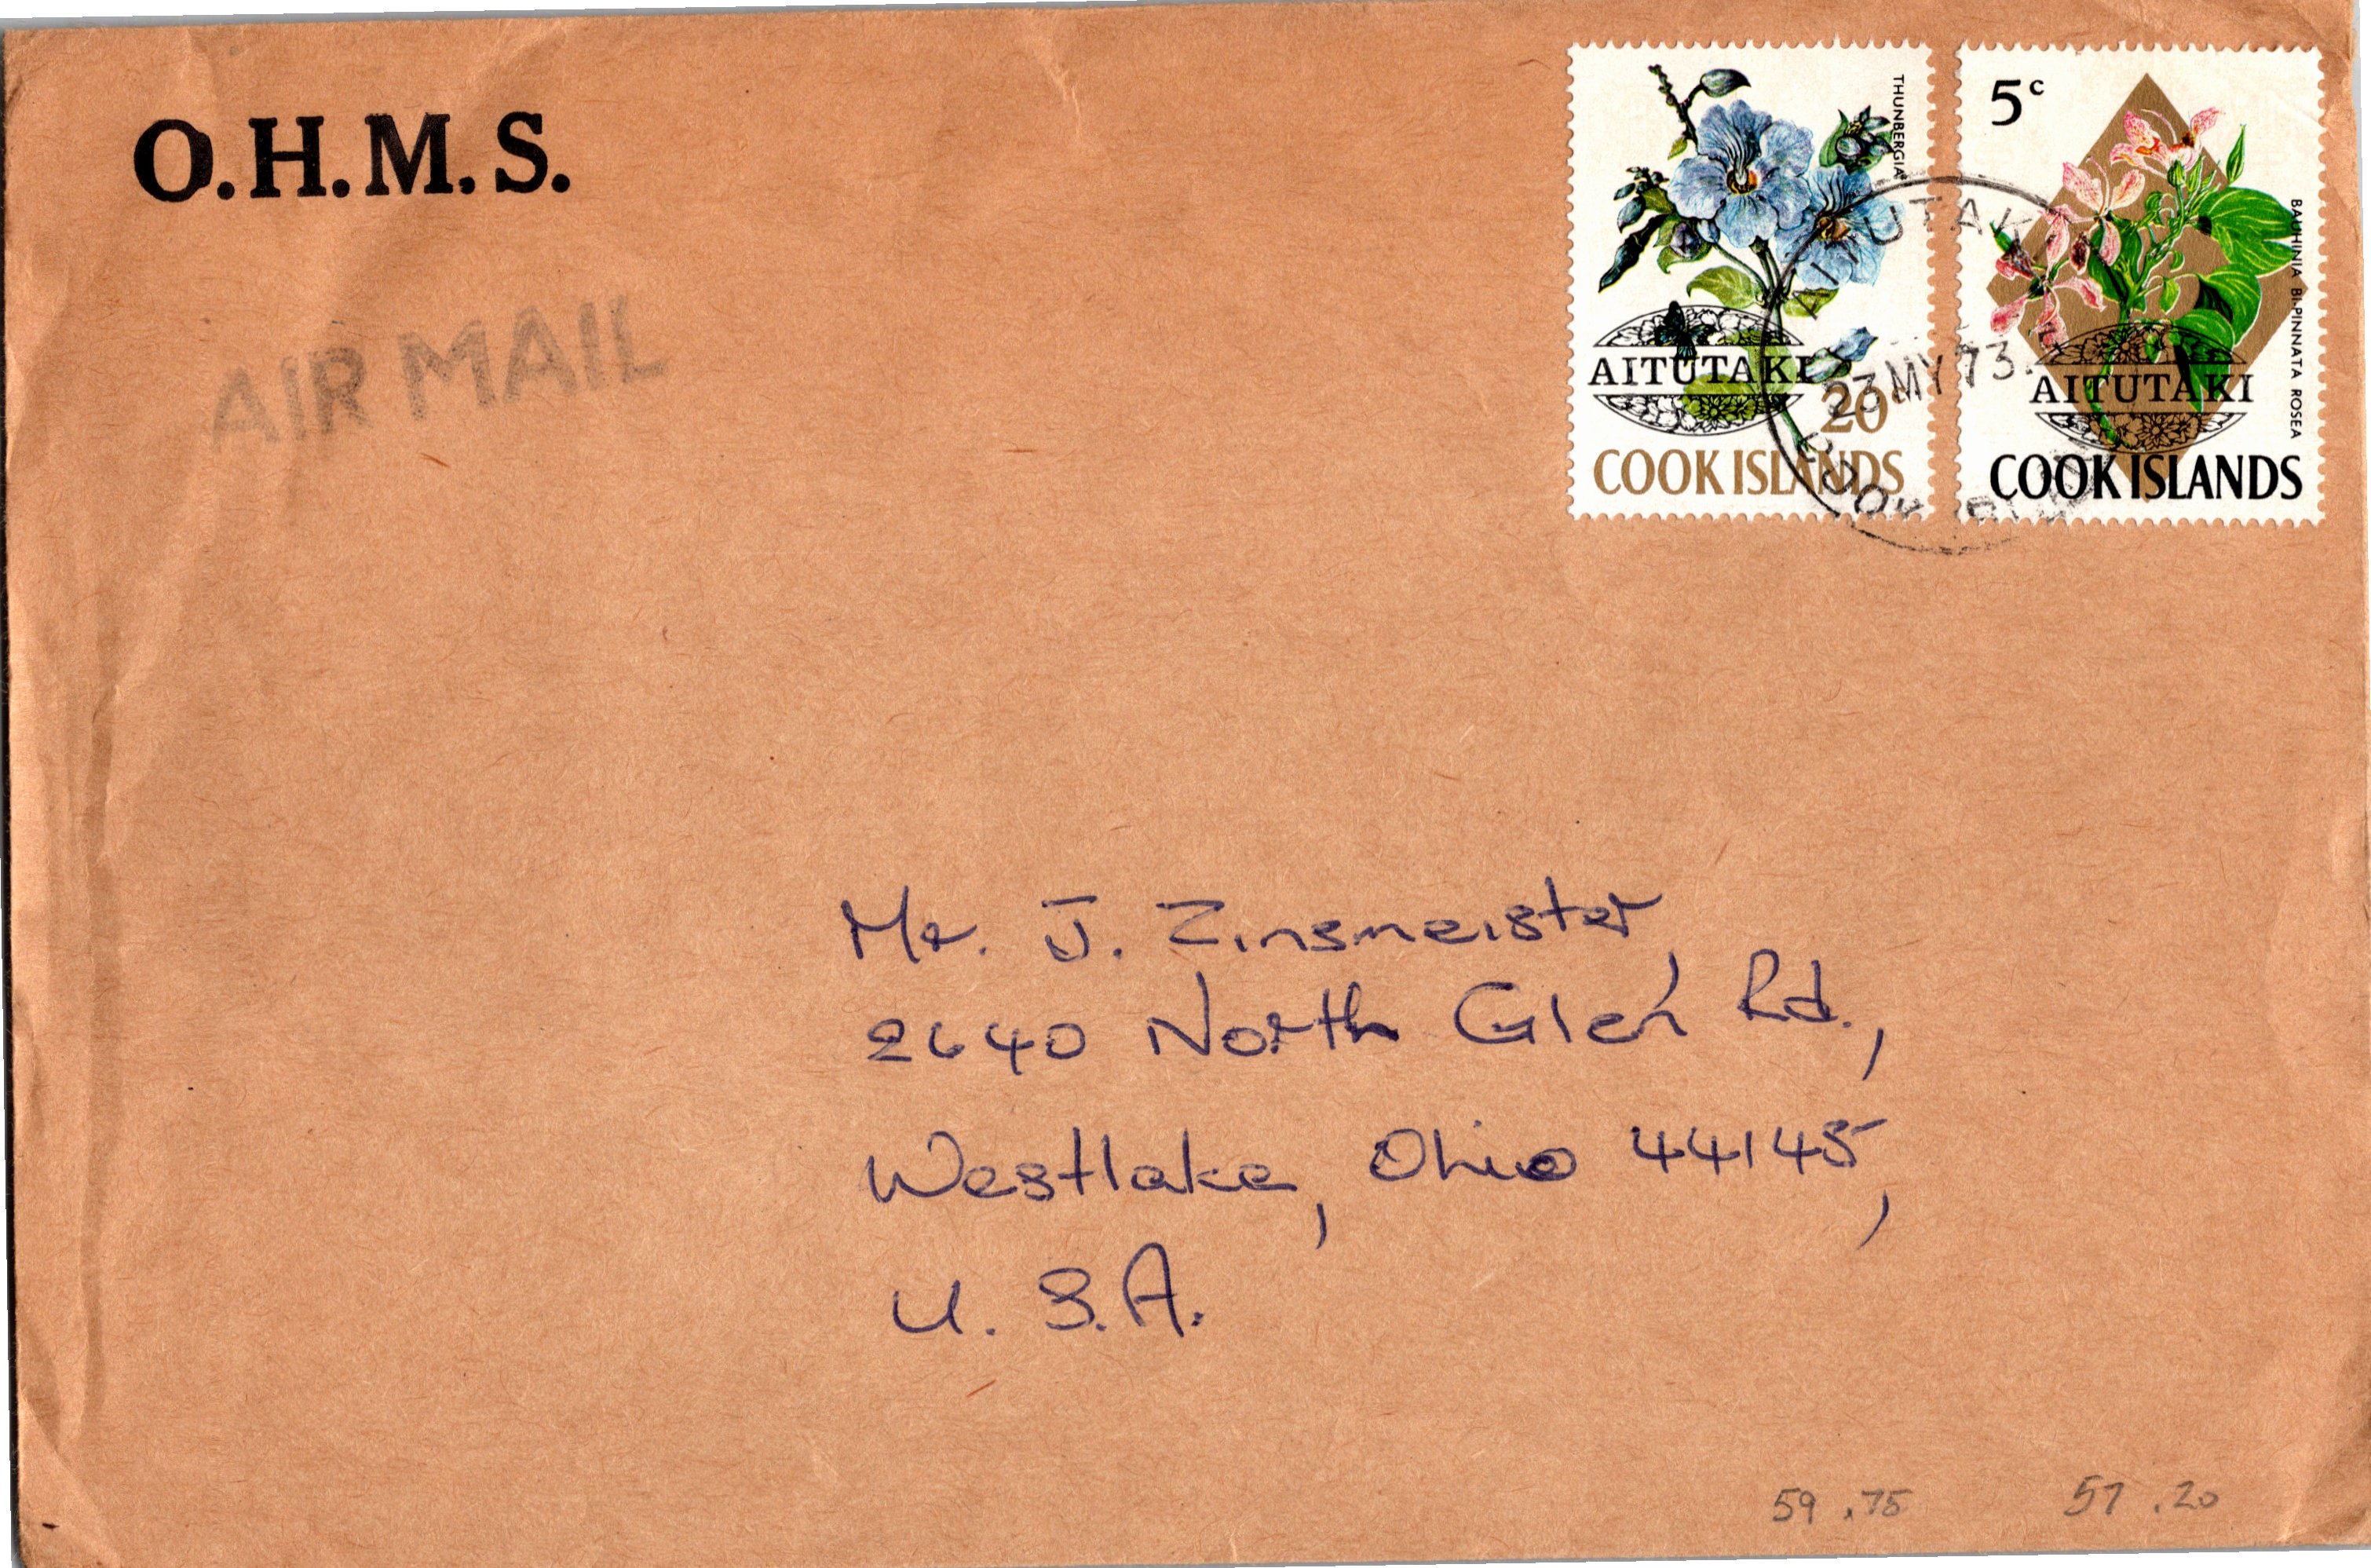 O.H.M.S.
AIR MAIL
THUNBERGIA
AITUTAKI
20c
COOK ISLANDS
5c
BAUHINIA BI-PINNATA ROSEA
AITUTAKI
COOK ISLANDS
AITUTAKI
23 MY 73
COOK ISLANDS
Mr. J. Zinsmeister,
2640 North Glen Rd.,
Westlake, Ohio 44145,
U. S. A.
59 .75 57 .20